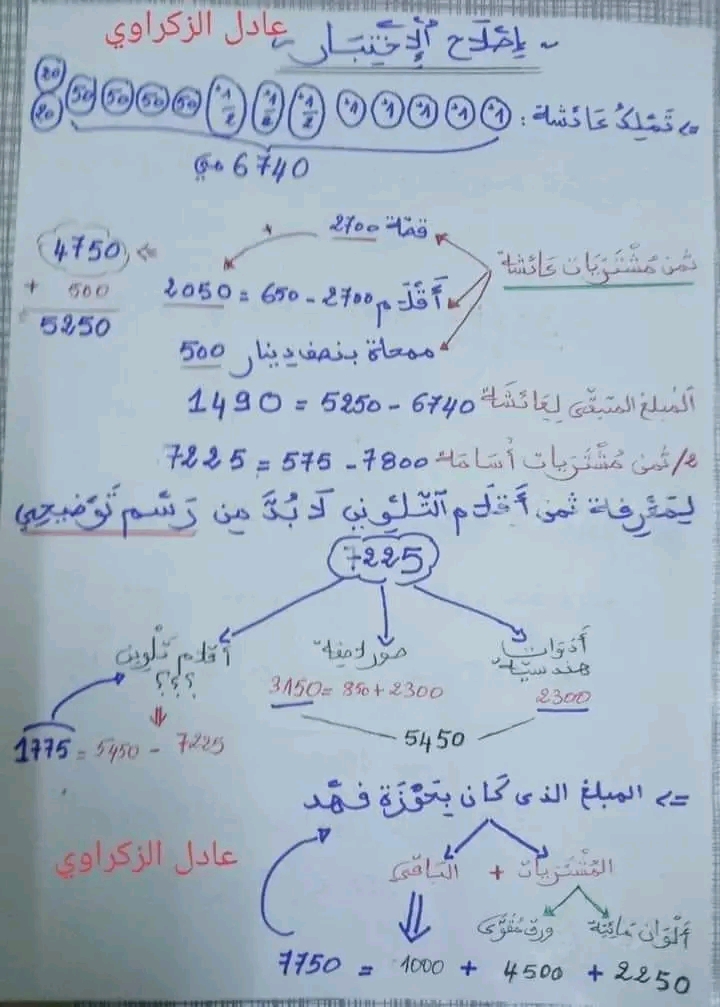 عادل الزكراوي
~ إصلاح الاختبار ~
=> تملك عائشة: 1 1 1 1 1 1/2 1/2 1/2 50 50 50 50 20 20
6740 مي
ثمن مشتريات عائشة
قصّة 2700
أقلام 2700 - 650 = 2050
ممحاة بنصف دينار 500
=> 4750
+ 500
5250
المبلغ المتبقّي لعائشة 6740 - 5250 = 1490
2/ ثمن مشتريات أسامة 7800 - 575 = 7225
لمعرفة ثمن أقلام التلوين لا بدّ من رسم توضيحي
7225
أدوات هندسيّة صور لاصقة أقلام تلوين
؟؟؟
2300 2300 + 850 = 3150
7225 - 5450 = 1775
5450
=> المبلغ الذي كان بحوزة فهد
المشتريات + الباقي
ألوان مائيّة ورق مقوّى
2250 + 4500 + 1000 = 7750
عادل الزكراوي